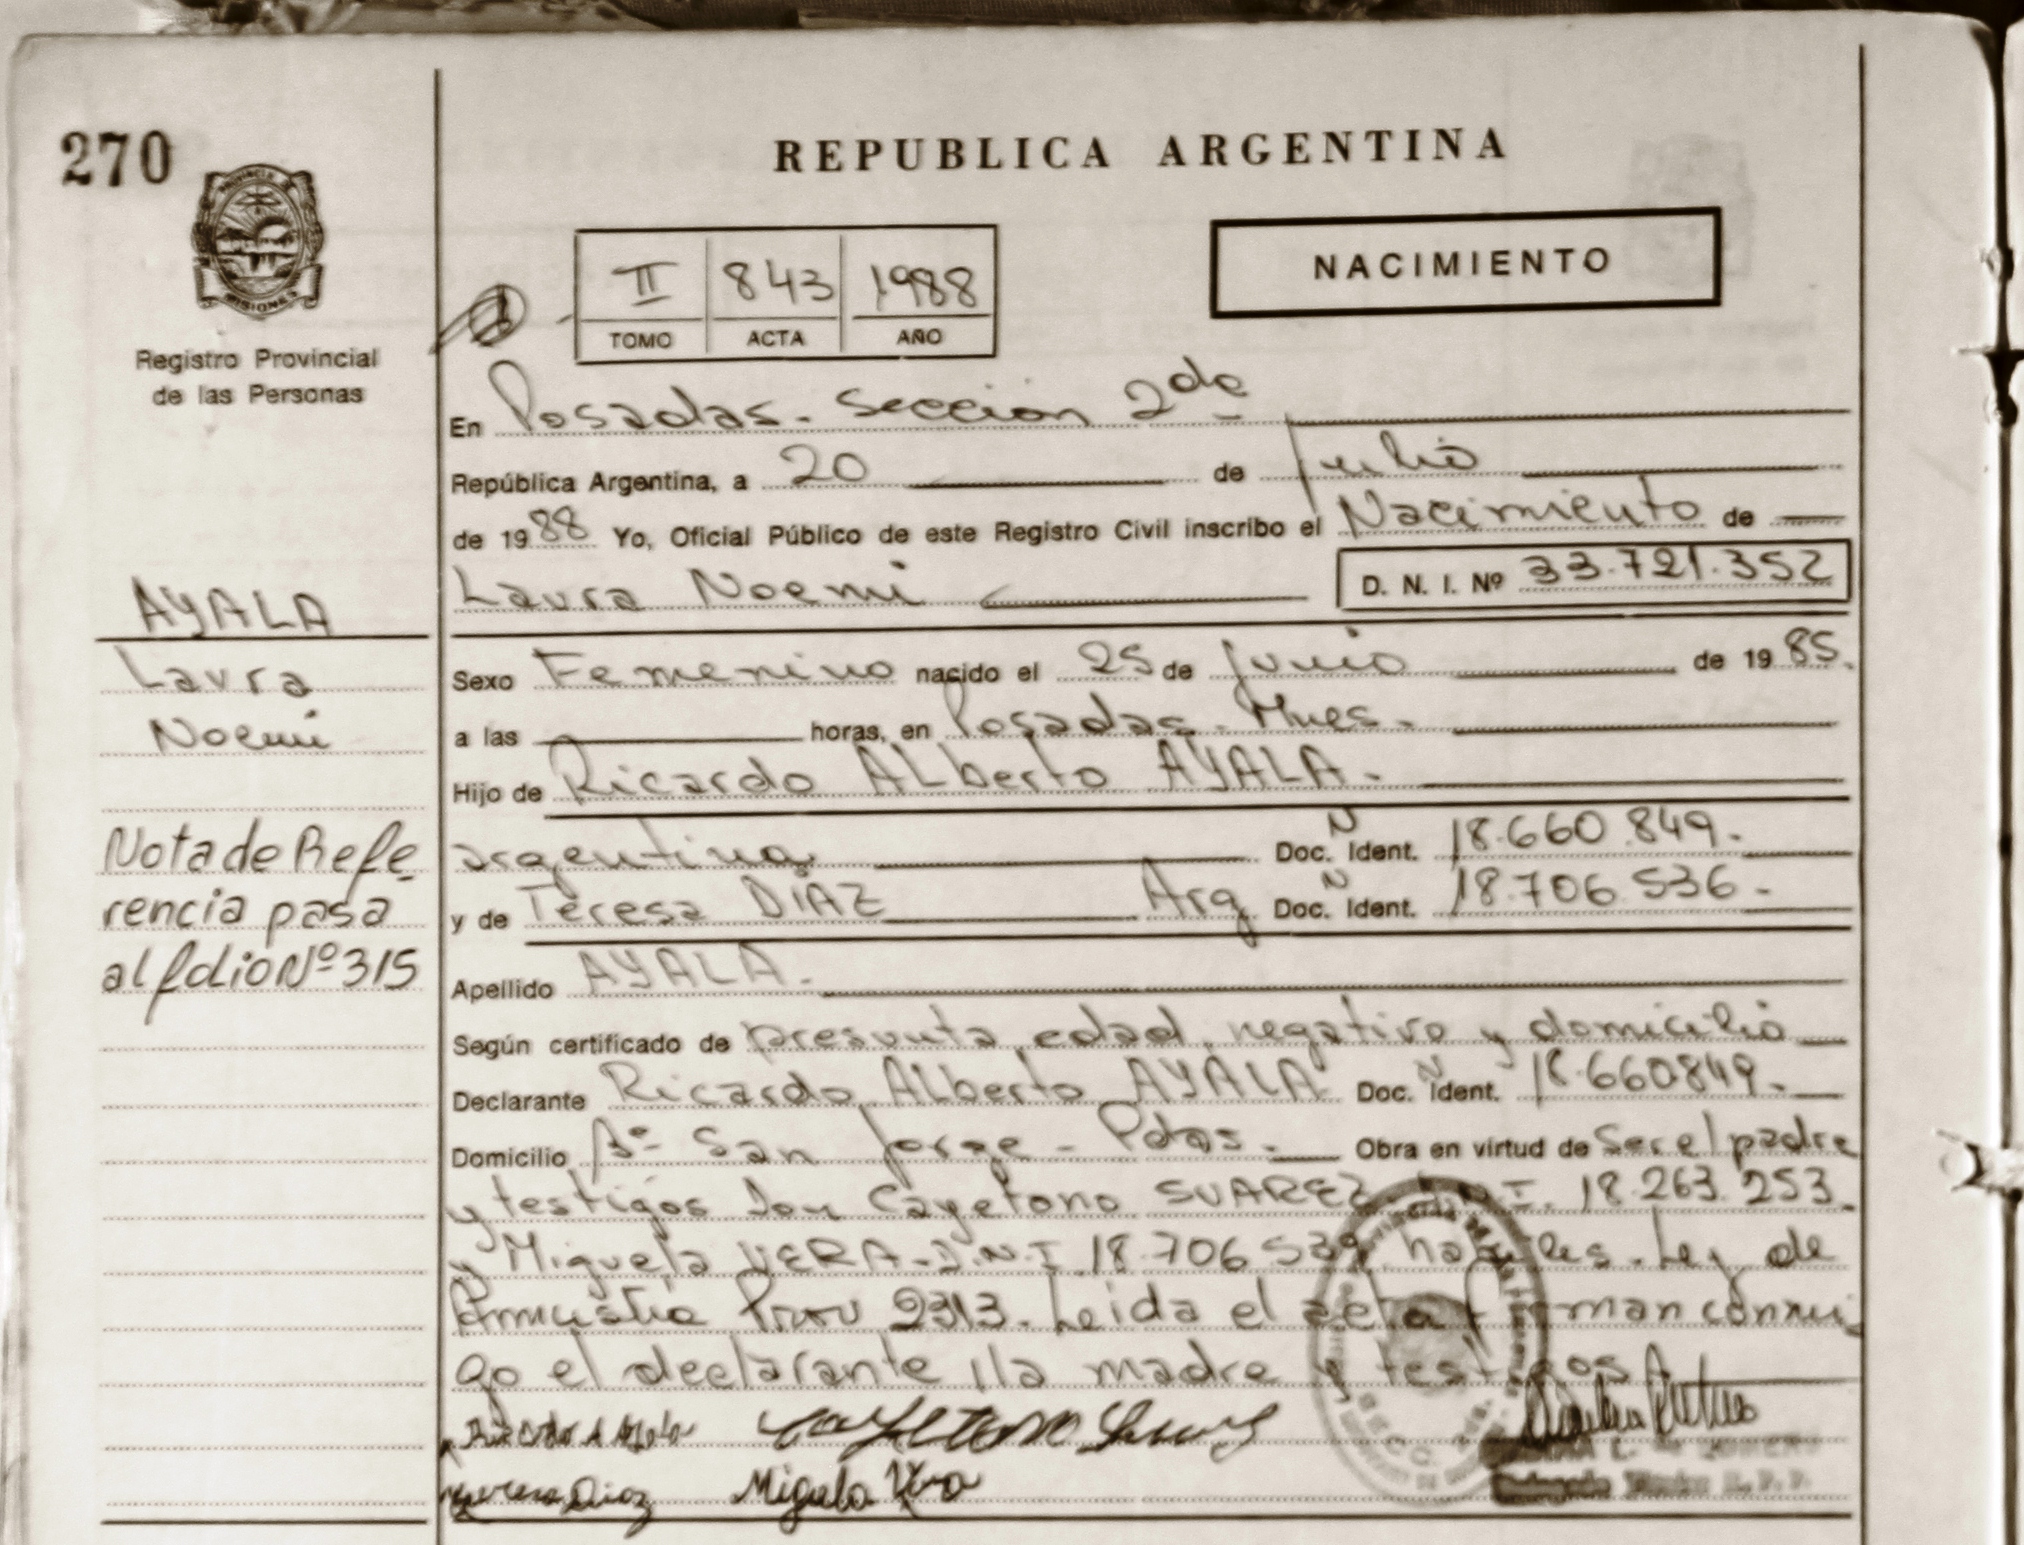 270
REPUBLICA ARGENTINA
PROVINCIA DE
MISIONES
Registro Provincial
de las Personas
II 843 1988
TOMO ACTA AÑO
NACIMIENTO
En Posadas. Sección 2da
República Argentina, a 20 de Julio
de 1988 Yo, Oficial Público de este Registro Civil inscribo el Nacimiento de
Laura Noemi D. N. I. Nº 33.721.352
AYALA
Laura
Noemi
Sexo Femenino nacido el 25 de Junio de 1985.
a las horas, en Posadas. Mnes.
Hijo de Ricardo ALberto AYALA.
argentina Doc. Ident. N 18.660.849.
y de Teresa DIAZ Arg Doc. Ident. N 18.706.536.
Nota de Refe
rencia pasa
al folio Nº 315
Apellido AYALA.
Según certificado de presunta edad, negativo y domicilio
Declarante Ricardo ALberto AYALA Doc. Ident. N 18.660849.
Domicilio Bº San Jorge - Pdas. Obra en virtud de ser el padre
y testigos Don Cayetano SUAREZ D.N.I. 18.263.253.
y Miguela VERA - D.N.I. 18.706.539 habiles. Ley de
Amnistia Prov 2313. Leida el acta firman conmi
go el declarante, la madre y testigos
Ricardo A Ayala
Teresa Diaz Miguela Vera